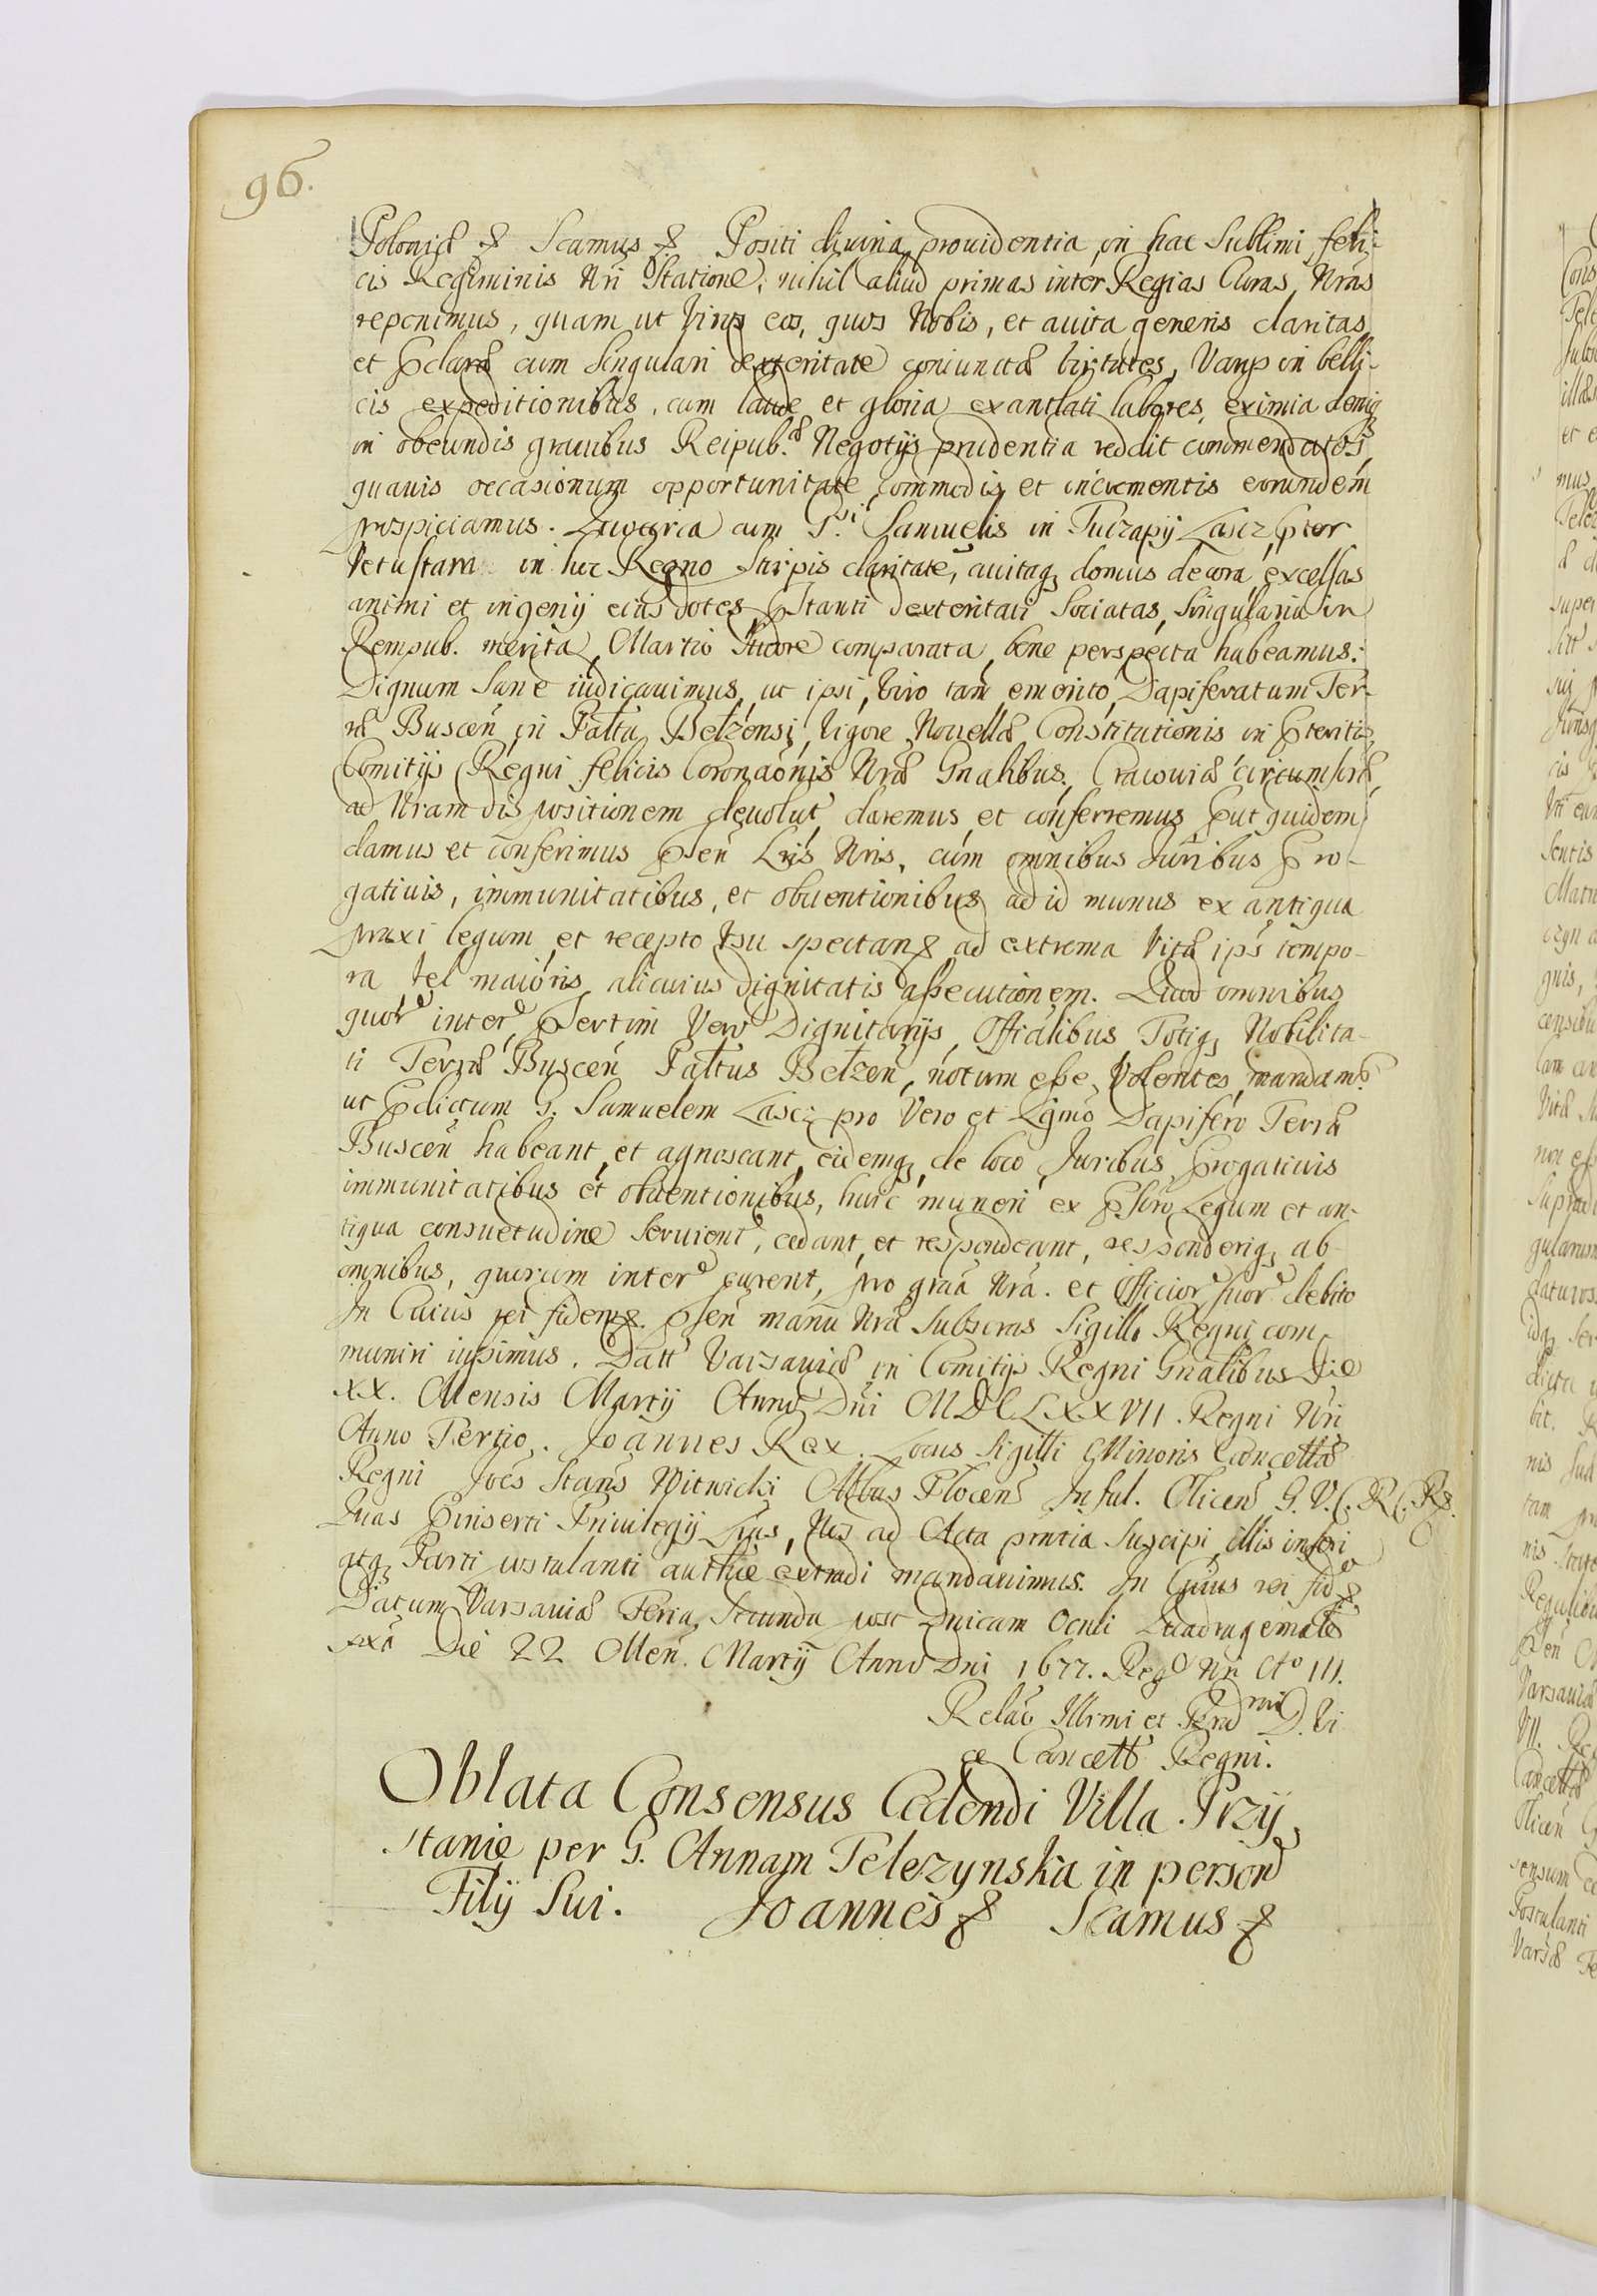 96.
Poloniæ & Scamus & Positi divina providentia, in hac Sublimi feli-
cis Regiminis Nri Statione, nihil aliud primas inter Regias Curas Nras
reponimus, quam ut Viris eos, quos Nobis, et avita generis claritas,
et Pclaræ cum Singulari dexteritate coniunctæ Virtutes, Varijs in belli-
cis expeditionibus, cum laude et gloria exantlati labores, eximia deniq
in obeundis gravibus Reipub. Negotijs prudentia reddit commendatos,
quavis occasionum opportunitate commodis et incrementis eorundem
prospiciamus. cum Gsi Samuelis in Tuczapy Łascz Pter
Vetustam in hoc Regno Stirpis claritatē, avitaq domus decora, excelsas
animi et ingenij eius dotes, Pstanti dexteritati Sociatas, Singularia in
Rempub. merita, Martio Sudore comparata, bene perspecta habeamus:
Dignum Sane iudicavimus, ut ipsi, Viro tam emerito, Dapiferatum Ter-
ræ Buscen in Pałtu Bełzensi, Vigore Novellæ Constitutionis in Pteritis
Comitijs Regni felicis Coronaōnis Nræ Gnalibus, Cracoviæ
ad Nram dispositionem devolut, daremus, et conferremus Put quidem
damus et conferimus Psen Lris Nris, cum omnibus Juribus Pro-
gativis, immunitatibus, et obventionibus ad id munus ex antiqua
praxi legum, et recepto Usu spectan & ad extrema Vitæ ips tempo-
ra Vel maioris alicuius Dignitatis assecutionem. Quod omnibus
quor inter, Psertim Vero Dignitarijs, Offialibus Totiq Nobilita-
ti Terræ Buscen Pałtus Bełzen, notum esse Volentes, mandams
ut Pdictum G. Samuelem Łascz pro Vero et Lgmo Dapifero Terræ
Buscen habeant, et agnoscant, eidemq de loco Juribus, Progativis
immunitatibus et obventionibus, huic muneri ex Pscro Legum et an-
tiqua consuetudine Servient, cedant, et respondeant, responderiq ab
omnibus, quorum inter curent, pro graa Nra. et Officior suor debito
In Cuius rei fidem &. Psen manu Nra Subscras Sigillo Regni com-
muniri iussimus. Datt Varsaviæ in Comitijs Regni Gnalibus Die
XX. Mensis Martij Anno Dni MDCLXXVII. Regni Nri
Anno Tertio. Joannes Rex. Locus Sigilli Minoris Cancellæ
Regni Joēs Stans Witwicki Abbas Płocen Inful. Olicen G. V. C. R. C. R &.
Quas Pinserti Privilegij Lras, Nos ad Acta pntia Suscipi, illis inseri
atq Parti postulanti authce extradi mandavimus. In Cuius rei fid &.
Datum Varsaviæ Feria Secunda post Dnicam Oculi Quadragemalē
pxa Die 22 Men. Martij Anno Dni 1677. Reg Nri Ao III.
Relāo Illrmi et Rndmi D. Vi
ce Cancell Regni.
Oblata Consensus Cedendi Villa Przy
stanie per G. Annam Teleszynska in person
Filij Sui. Joannes & Scamus &